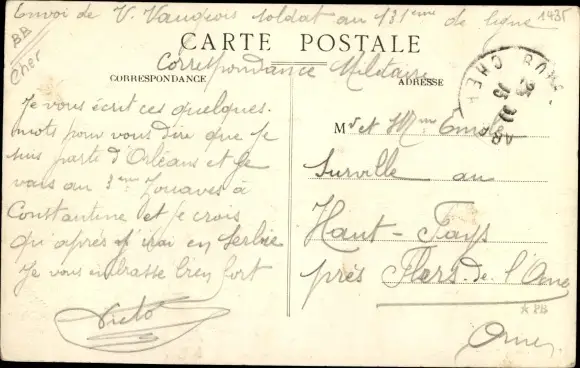 Envoi de V. Vaugeois soldat au 131ème de ligne
1435
BB
Cher
CARTE POSTALE
Correspondance Militaire
CORRESPONDANCE
ADRESSE
Je vous écrit ces quelques
mots pour vous dire que je
suis parti d'Orléans et je
vais au 3ème Zouaves à
Constantine et je crois
qu'après j'irai en Serbie
Je vous embrasse bien fort
Victo
CHER
Mr et Mme Emile
Surville au
Haut-Pays
près Flers-de-l'Orne
Orne